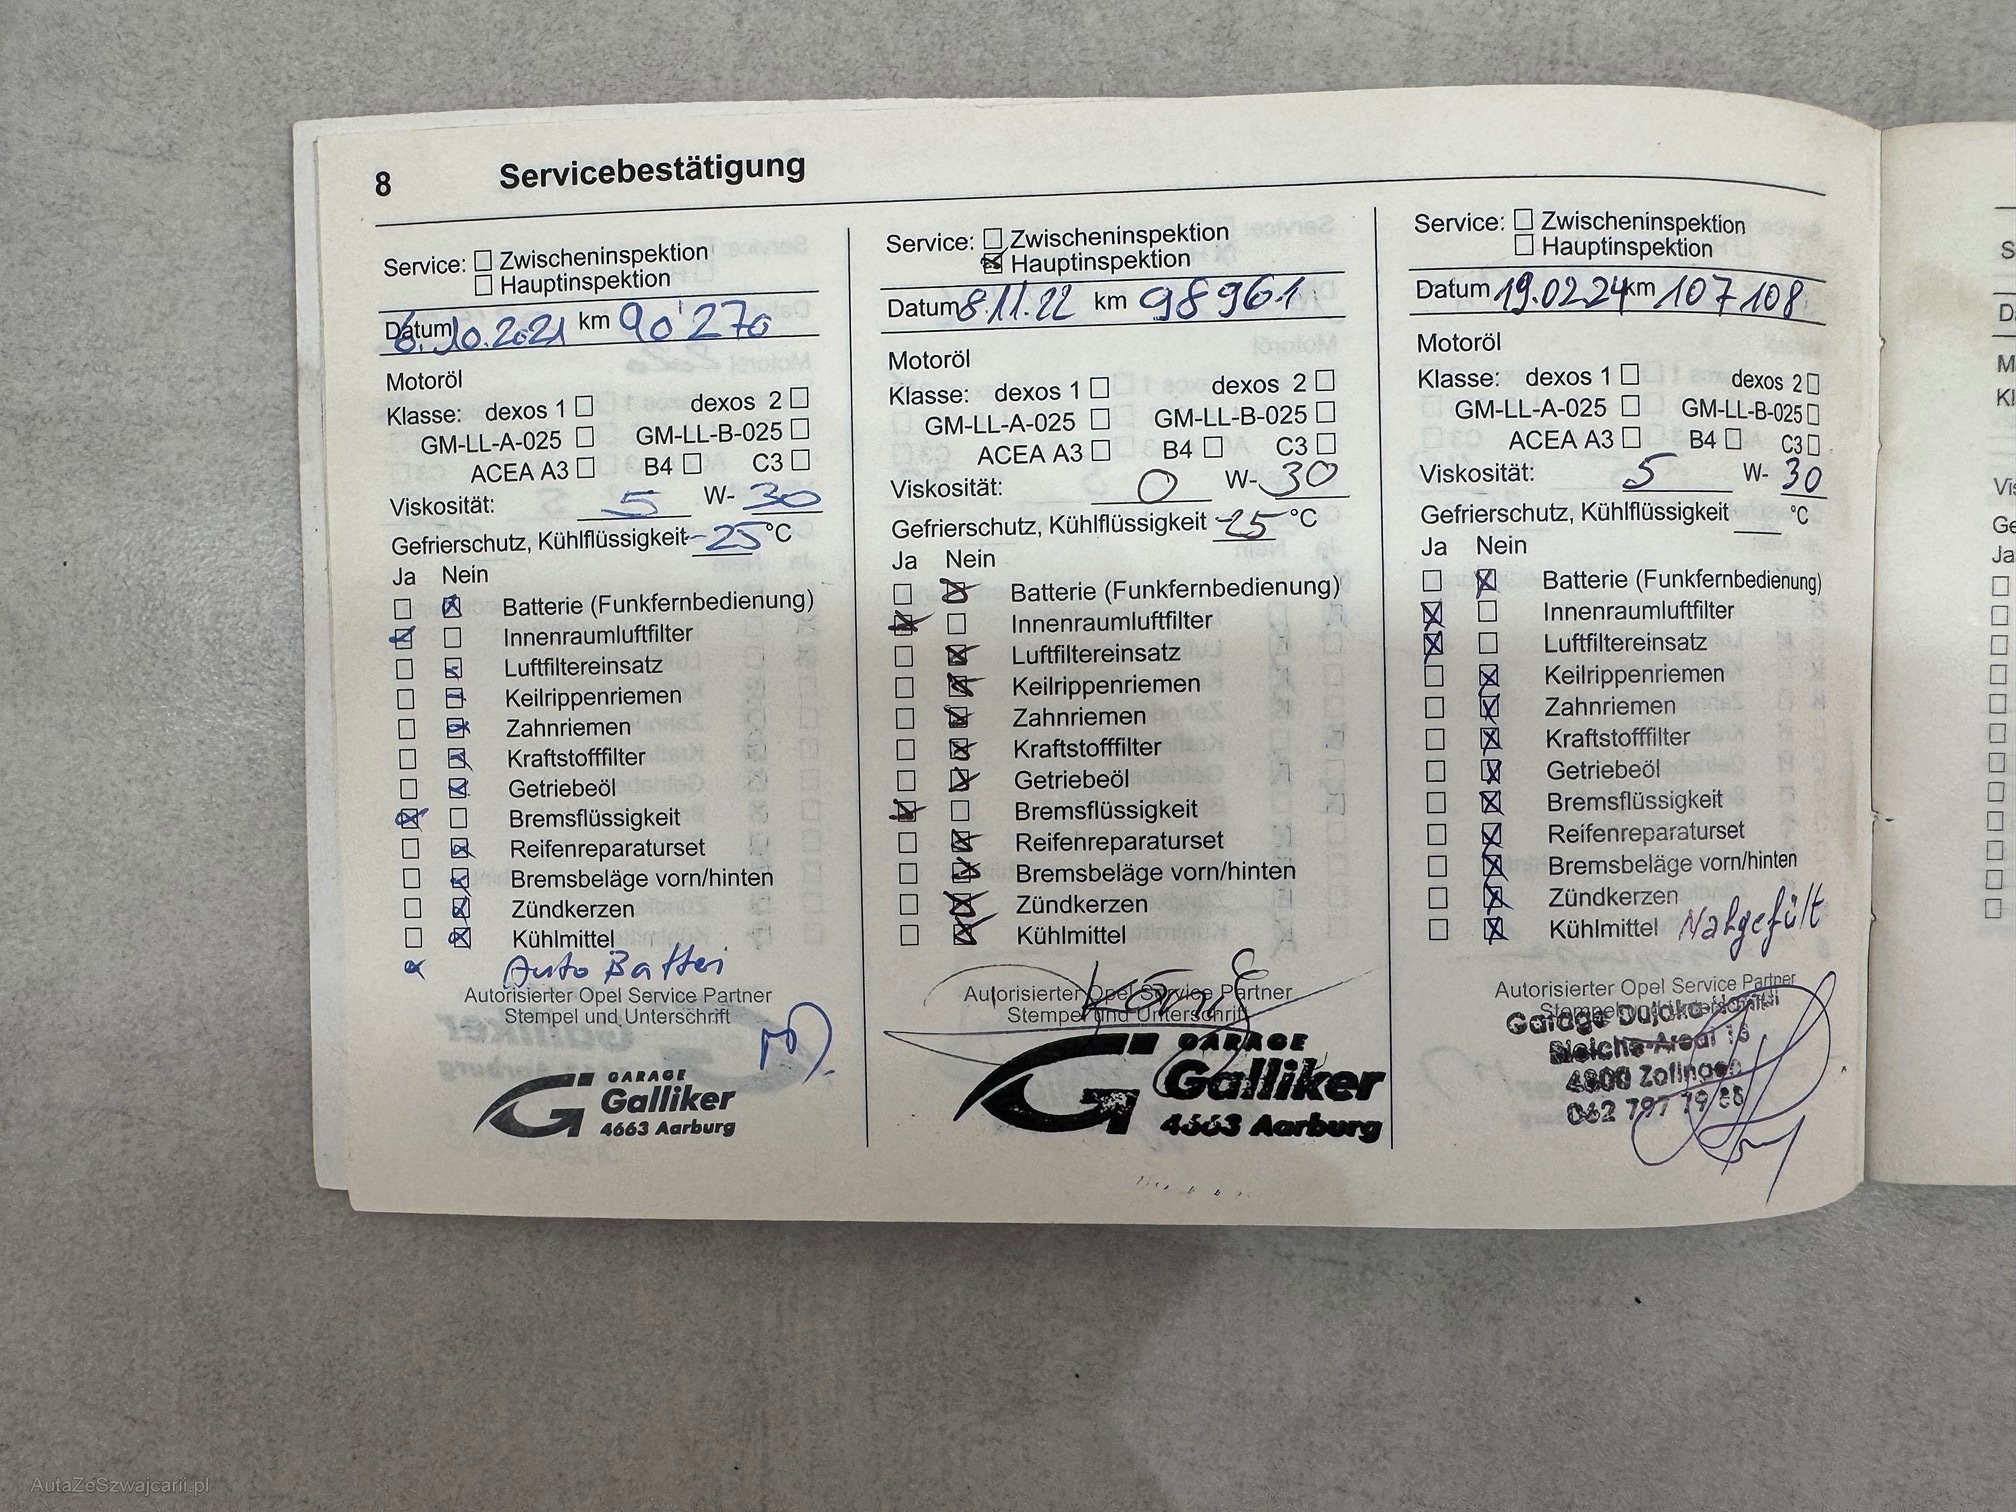 8 Servicebestätigung
Service: ☐ Zwischeninspektion
☐ Hauptinspektion
Datum 6.10.2021 km 90'270
Motoröl
Klasse: dexos 1 ☐ dexos 2 ☐
GM-LL-A-025 ☐ GM-LL-B-025 ☐
ACEA A3 ☐ B4 ☐ C3 ☐
Viskosität: 5 W- 30
Gefrierschutz, Kühlflüssigkeit -25 °C
Ja Nein
☐ ☒ Batterie (Funkfernbedienung)
☒ ☐ Innenraumluftfilter
☐ ☒ Luftfiltereinsatz
☐ ☒ Keilrippenriemen
☐ ☒ Zahnriemen
☐ ☒ Kraftstofffilter
☐ ☒ Getriebeöl
☒ ☐ Bremsflüssigkeit
☐ ☒ Reifenreparaturset
☐ ☒ Bremsbeläge vorn/hinten
☐ ☒ Zündkerzen
☐ ☒ Kühlmittel
x Auto Batteri
Autorisierter Opel Service Partner
Stempel und Unterschrift
GARAGE
Galliker
4663 Aarburg
Service: ☐ Zwischeninspektion
☒ Hauptinspektion
Datum 8.11.22 km 98961
Motoröl
Klasse: dexos 1 ☐ dexos 2 ☐
GM-LL-A-025 ☐ GM-LL-B-025 ☐
ACEA A3 ☐ B4 ☐ C3 ☐
Viskosität: 0 W- 30
Gefrierschutz, Kühlflüssigkeit -25 °C
Ja Nein
☐ ☒ Batterie (Funkfernbedienung)
☒ ☐ Innenraumluftfilter
☐ ☒ Luftfiltereinsatz
☐ ☒ Keilrippenriemen
☐ ☒ Zahnriemen
☐ ☒ Kraftstofffilter
☐ ☒ Getriebeöl
☒ ☐ Bremsflüssigkeit
☐ ☒ Reifenreparaturset
☐ ☒ Bremsbeläge vorn/hinten
☐ ☒ Zündkerzen
☐ ☒ Kühlmittel
Autorisierter Opel Service Partner
Stempel und Unterschrift
GARAGE
Galliker
4663 Aarburg
Service: ☐ Zwischeninspektion
☐ Hauptinspektion
Datum 19.02.24 km 107108
Motoröl
Klasse: dexos 1 ☐ dexos 2 ☐
GM-LL-A-025 ☐ GM-LL-B-025 ☐
ACEA A3 ☐ B4 ☐ C3 ☐
Viskosität: 5 W- 30
Gefrierschutz, Kühlflüssigkeit °C
Ja Nein
☐ ☒ Batterie (Funkfernbedienung)
☒ ☐ Innenraumluftfilter
☒ ☐ Luftfiltereinsatz
☐ ☒ Keilrippenriemen
☐ ☒ Zahnriemen
☐ ☒ Kraftstofffilter
☐ ☒ Getriebeöl
☐ ☒ Bremsflüssigkeit
☐ ☒ Reifenreparaturset
☐ ☒ Bremsbeläge vorn/hinten
☐ ☒ Zündkerzen
☐ ☒ Kühlmittel Nahgefült
Autorisierter Opel Service Partner
Stempel und Unterschrift
Garage
Bleiche-Areal
4800 Zofingen
062 797 79
AutaZeSzwajcarii.pl